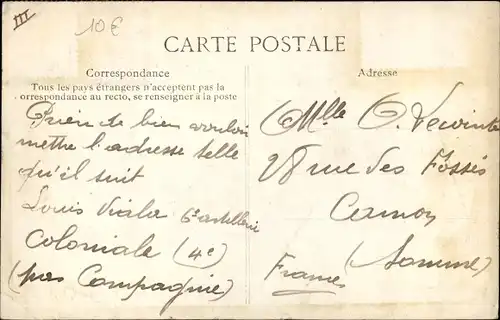 III
10€
CARTE POSTALE
Correspondance
Tous les pays étrangers n'acceptent pas la
correspondance au recto, se renseigner à la poste
de bien vouloir
mettre l'adresse telle
qu'il suit
Louis Viala 6e artillerie
Coloniale (4e)
(pas Compagnie)
Adresse
Mlle O.
28 rue des Fossés
(Somme)
France